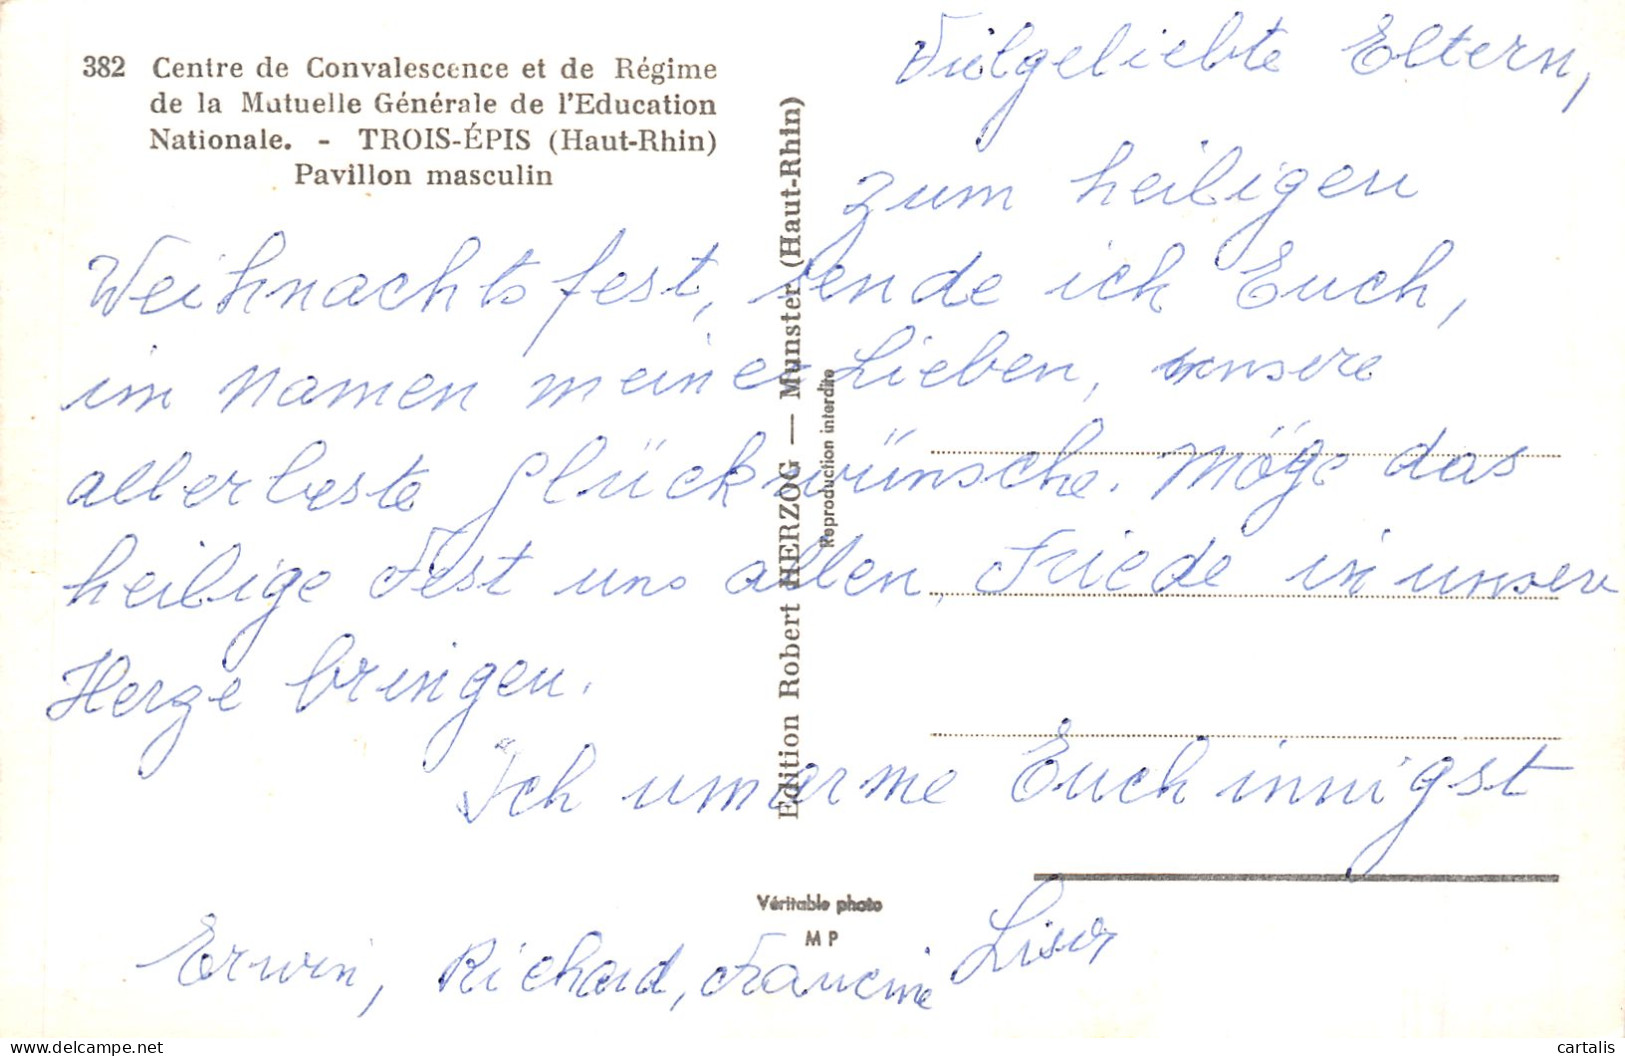 382 Centre de Convalescence et de Régime
de la Mutuelle Générale de l'Education
Nationale. - TROIS-ÉPIS (Haut-Rhin)
Pavillon masculin
Vielgeliebte Eltern,
zum heiligen
Weihnachtsfest, sende ich Euch,
im Namen meiner Lieben, unsere
allerbeste Glückwünsche. Möge das
heilige Fest uns allen, Friede in unsere
Herze bringen.
Ich umarme Euch innigst
Erwin, Richard, Francine
Edition Robert HERZOG — Munster (Haut-Rhin)
Reproduction interdite
Véritable photo
MP
cartalis